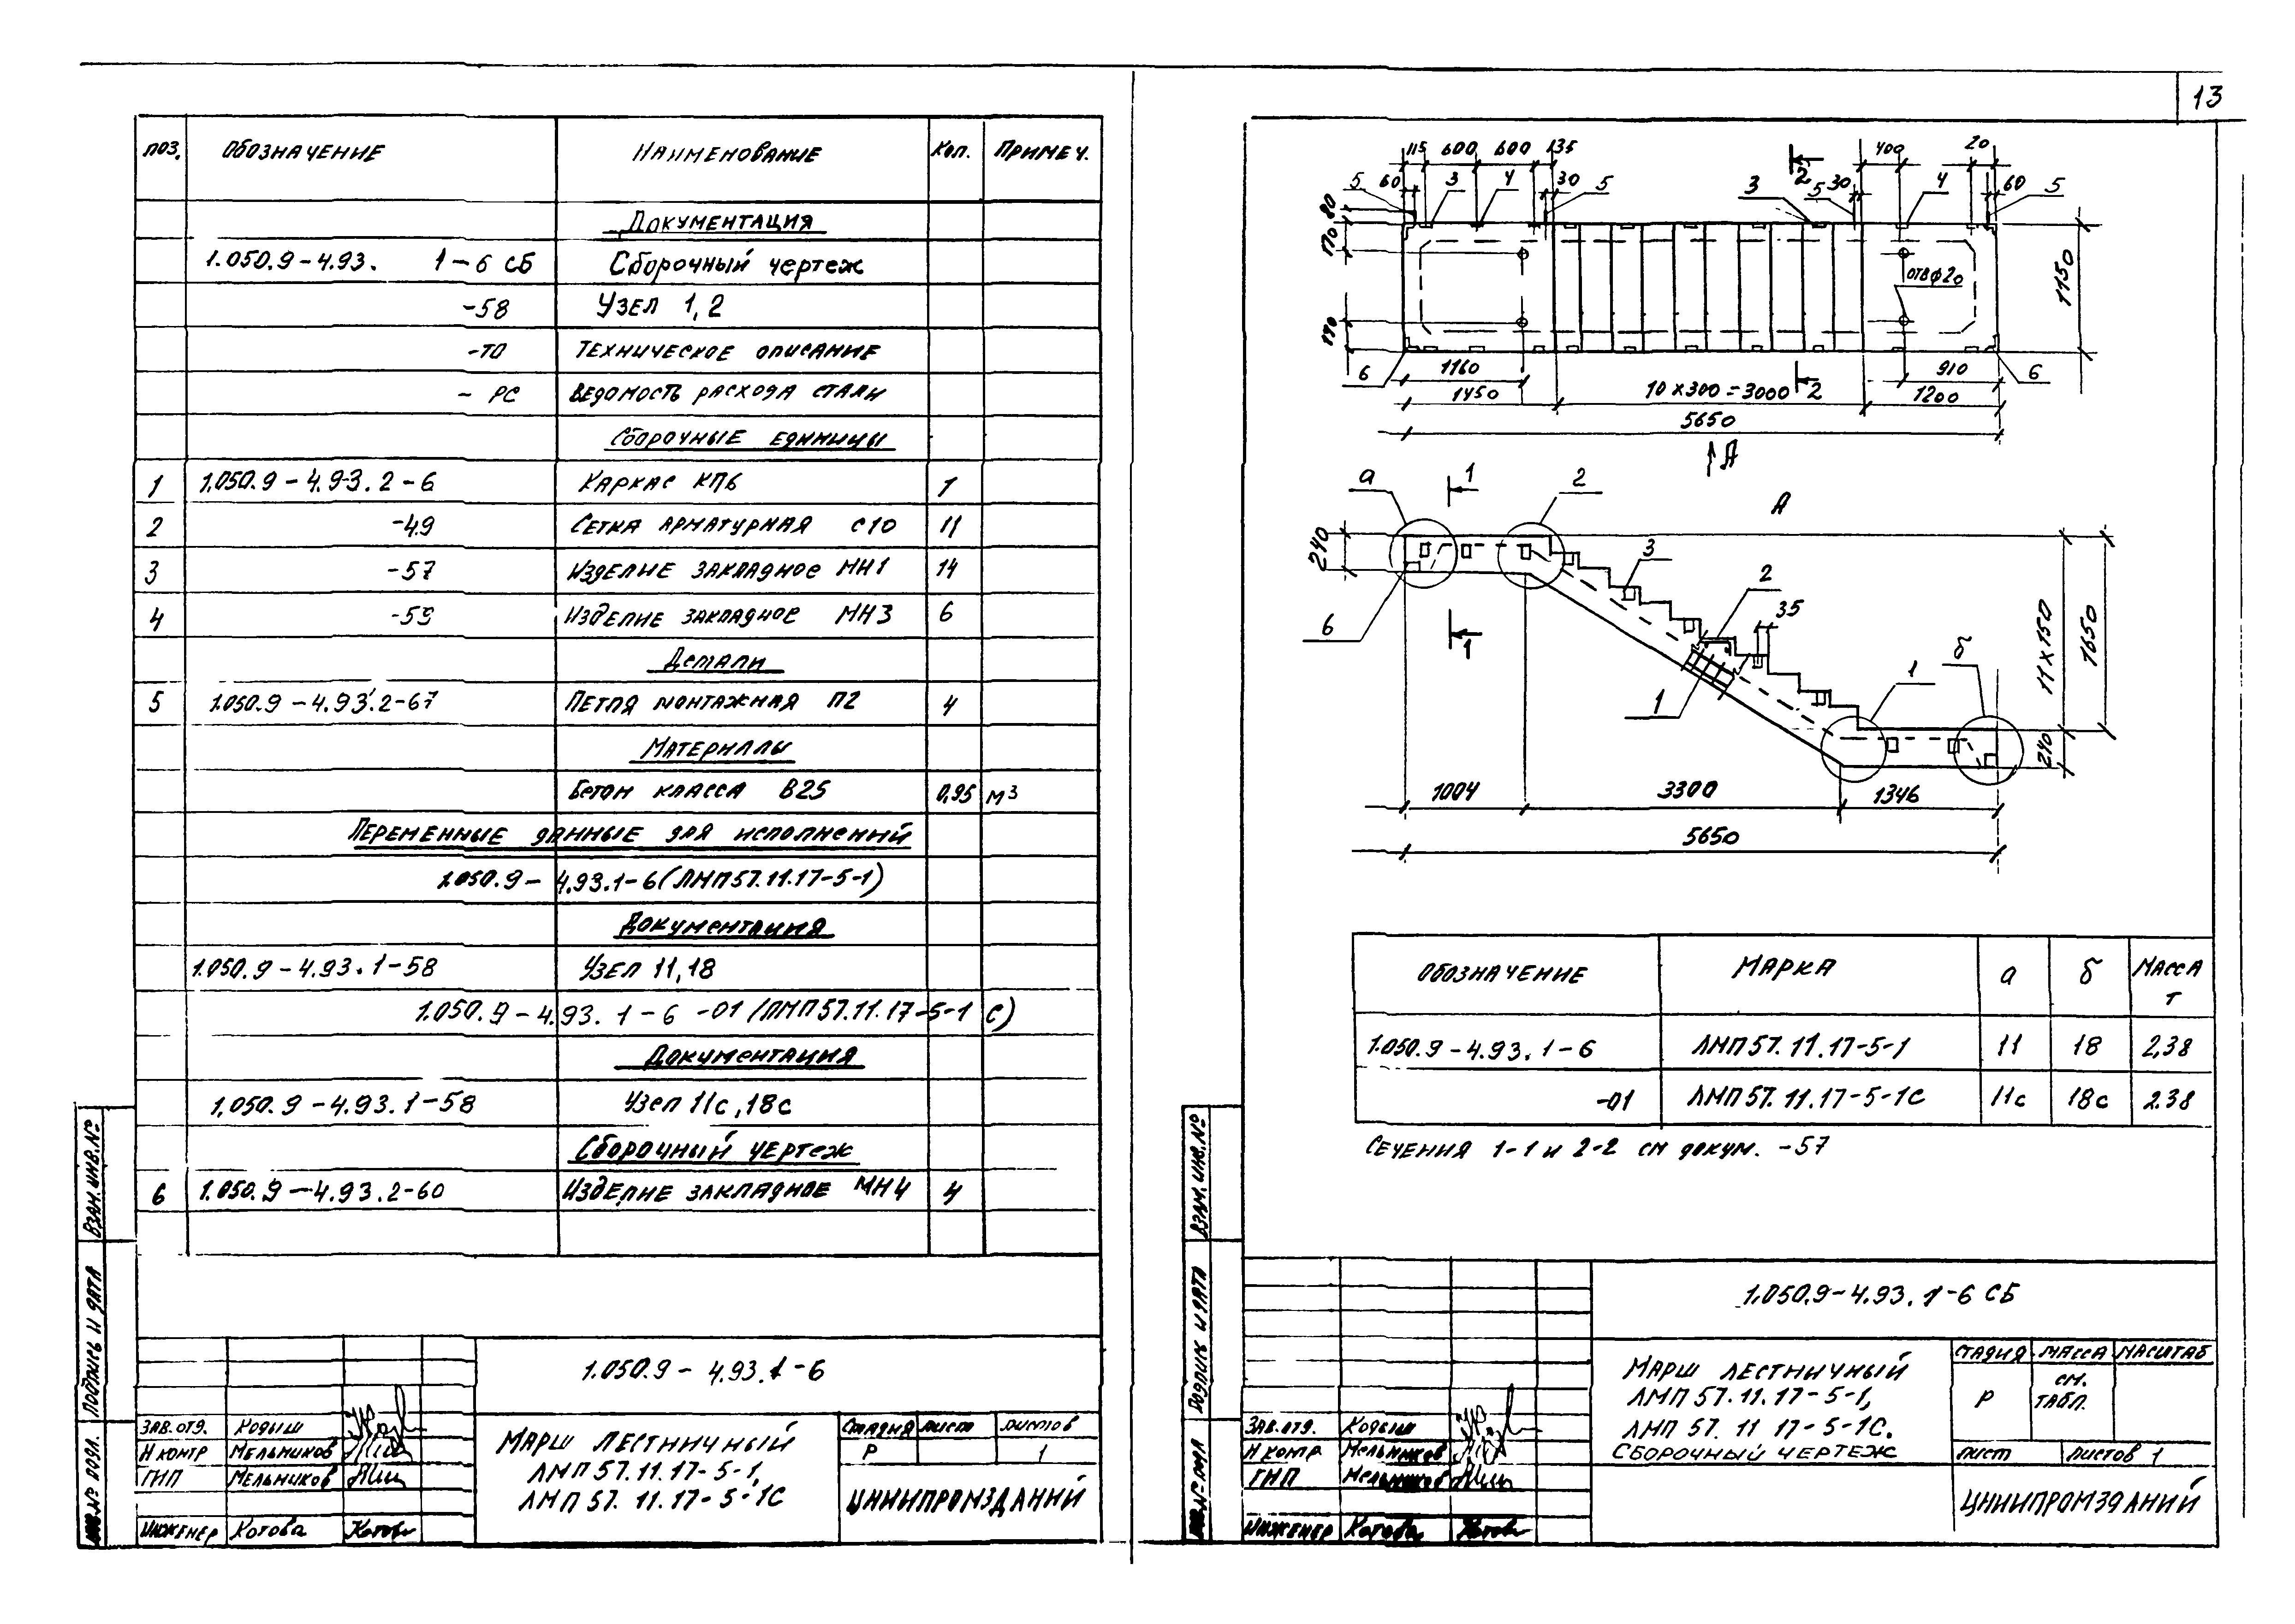 13
ПОЗ. ОБОЗНАЧЕНИЕ НАИМЕНОВАНИЕ Кол. ПРИМЕЧ.
ДОКУМЕНТАЦИЯ
1.050.9-4.93. 1-6 СБ Сборочный чертеж
-58 Узел 1,2
-ТО ТЕХНИЧЕСКОЕ ОПИСАНИЕ
- РС ВЕДОМОСТЬ РАСХОДА СТАЛИ
СБОРОЧНЫЕ ЕДИНИЦЫ
1 1.050.9-4.93.2-6 КАРКАС КП6 1
2 -49 СЕТКА АРМАТУРНАЯ С10 11
3 -57 ИЗДЕЛИЕ ЗАКЛАДНОЕ МН1 14
4 -59 ИЗДЕЛИЕ ЗАКЛАДНОЕ МН3 6
ДЕТАЛИ
5 1.050.9-4.93.2-67 ПЕТЛЯ МОНТАЖНАЯ П2 4
МАТЕРИАЛЫ
БЕТОН КЛАССА В25 0,95 м3
ПЕРЕМЕННЫЕ ДАННЫЕ ДЛЯ ИСПОЛНЕНИЙ
1.050.9-4.93.1-6 (ЛМП57.11.17-5-1)
ДОКУМЕНТАЦИЯ
1.050.9-4.93.1-58 УЗЕЛ 11,18
1.050.9-4.93.1-6 -01 (ЛМП57.11.17-5-1С)
ДОКУМЕНТАЦИЯ
1.050.9-4.93.1-58 Узел 11с,18с
СБОРОЧНЫЙ ЧЕРТЕЖ
6 1.050.9-4.93.2-60 ИЗДЕЛИЕ ЗАКЛАДНОЕ МН4 4
ВЗАМ. ИНВ. №
ПОДПИСЬ И ДАТА
ИНВ. № ПОДЛ.
1.050.9-4.93.1-6
ЗАВ.ОТД. КОДЫШ
Н КОНТР МЕЛЬНИКОВ
ГИП МЕЛЬНИКОВ
ИНЖЕНЕР КОТОВА
МАРШ ЛЕСТНИЧНЫЙ
ЛМП57.11.17-5-1,
ЛМП57.11.17-5-1С
СТАДИЯ ЛИСТ ЛИСТОВ
Р 1
ЦНИИПРОМЗДАНИЙ
115 600 600 135 2 400 20
5 60 3 4 30 5 3 5 30 4 60 5
80
170
отвф20
1150
190
6 1160 910 6
1450 10×300=3000 2 1200
5650
А
а 1 2 А
240
3
2
35
6 1
1 1 б
11×150
1650
240
1004 3300 1346
5650
ОБОЗНАЧЕНИЕ МАРКА а б МАССА Т
1.050.9-4.93.1-6 ЛМП57.11.17-5-1 11 18 2,38
-01 ЛМП57.11.17-5-1С 11с 18с 2.38
СЕЧЕНИЯ 1-1 и 2-2 СМ ДОКУМ. -57
ВЗАМ. ИНВ. №
ПОДПИСЬ И ДАТА
ИНВ. № ПОДЛ
1.050.9-4.93.1-6 СБ
ЗАВ.ОТД. КОДЫШ
Н КОНТР МЕЛЬНИКОВ
ГИП МЕЛЬНИКОВ
ИНЖЕНЕР КОТОВА
МАРШ ЛЕСТНИЧНЫЙ
ЛМП57.11.17-5-1,
ЛМП 57. 11 17-5-1С.
СБОРОЧНЫЙ ЧЕРТЕЖ
СТАДИЯ МАССА МАСШТАБ
Р СМ. ТАБЛ.
ЛИСТ ЛИСТОВ 1
ЦНИИПРОМЗДАНИЙ